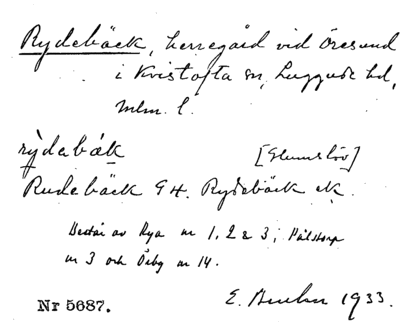 Rydebäck, herregård vid Öresund
i Kvistofta sn, Luggude hd,
Mlm. l.
rỳdabäk [Glumslöv]
Rudebäck GH. Rydebäck ek.
Består av Rya nr 1, 2 & 3, Pålstorp
nr 3 och Örby nr 14.
Nr 5687. E. 1933.